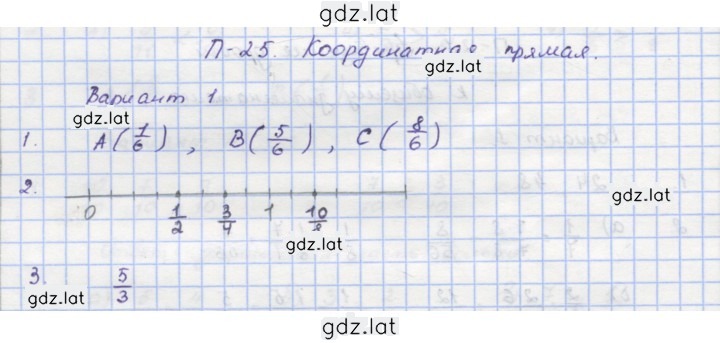 gdz.lat
П-25. Координатная прямая.
gdz.lat
Вариант 1
gdz.lat
1. A(1/6), B(5/6), C(8/6)
2. 0 1/2 3/4 1 10/8
gdz.lat
gdz.lat
3. 5/3
gdz.lat
gdz.lat
gdz.lat